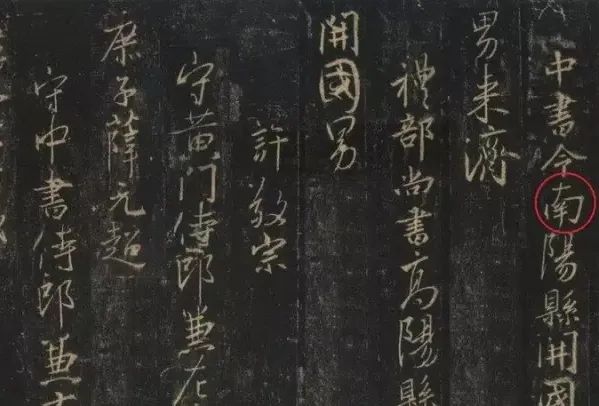 中書令南陽縣開國
男来濟
禮部尚書高陽縣
開國男
許敬宗
守黄门侍郎兼左
庶子薛元超
守中書侍郎兼右